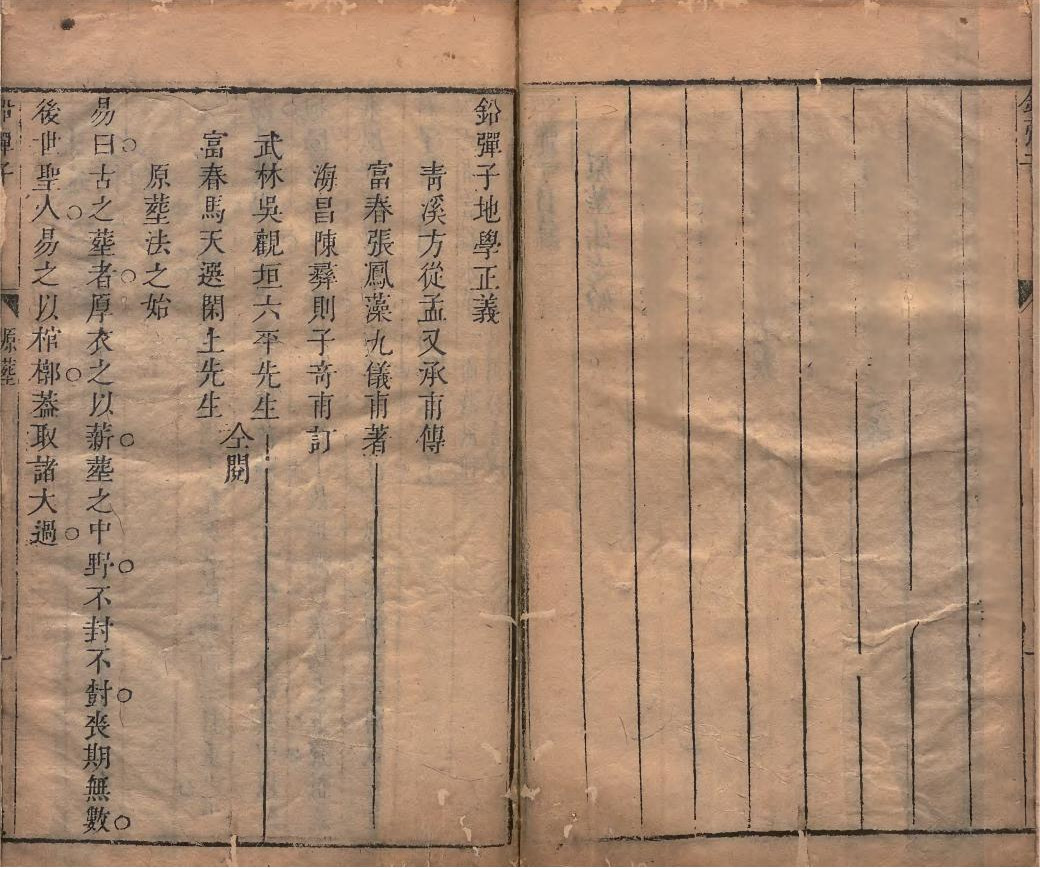 鉛彈子地學正義
青溪方從孟又承甫傳
富春張鳳藻九儀甫著
海昌陳彝則子竒甫訂
武林吳觀垣六平先生
富春馬天選閑土先生
仝閱
原塟法之始
易曰古之塟者厚衣之以薪塟之中野不封不尌喪期無數
後世聖人易之以棺槨葢取諸大過
鉛彈子 原塟